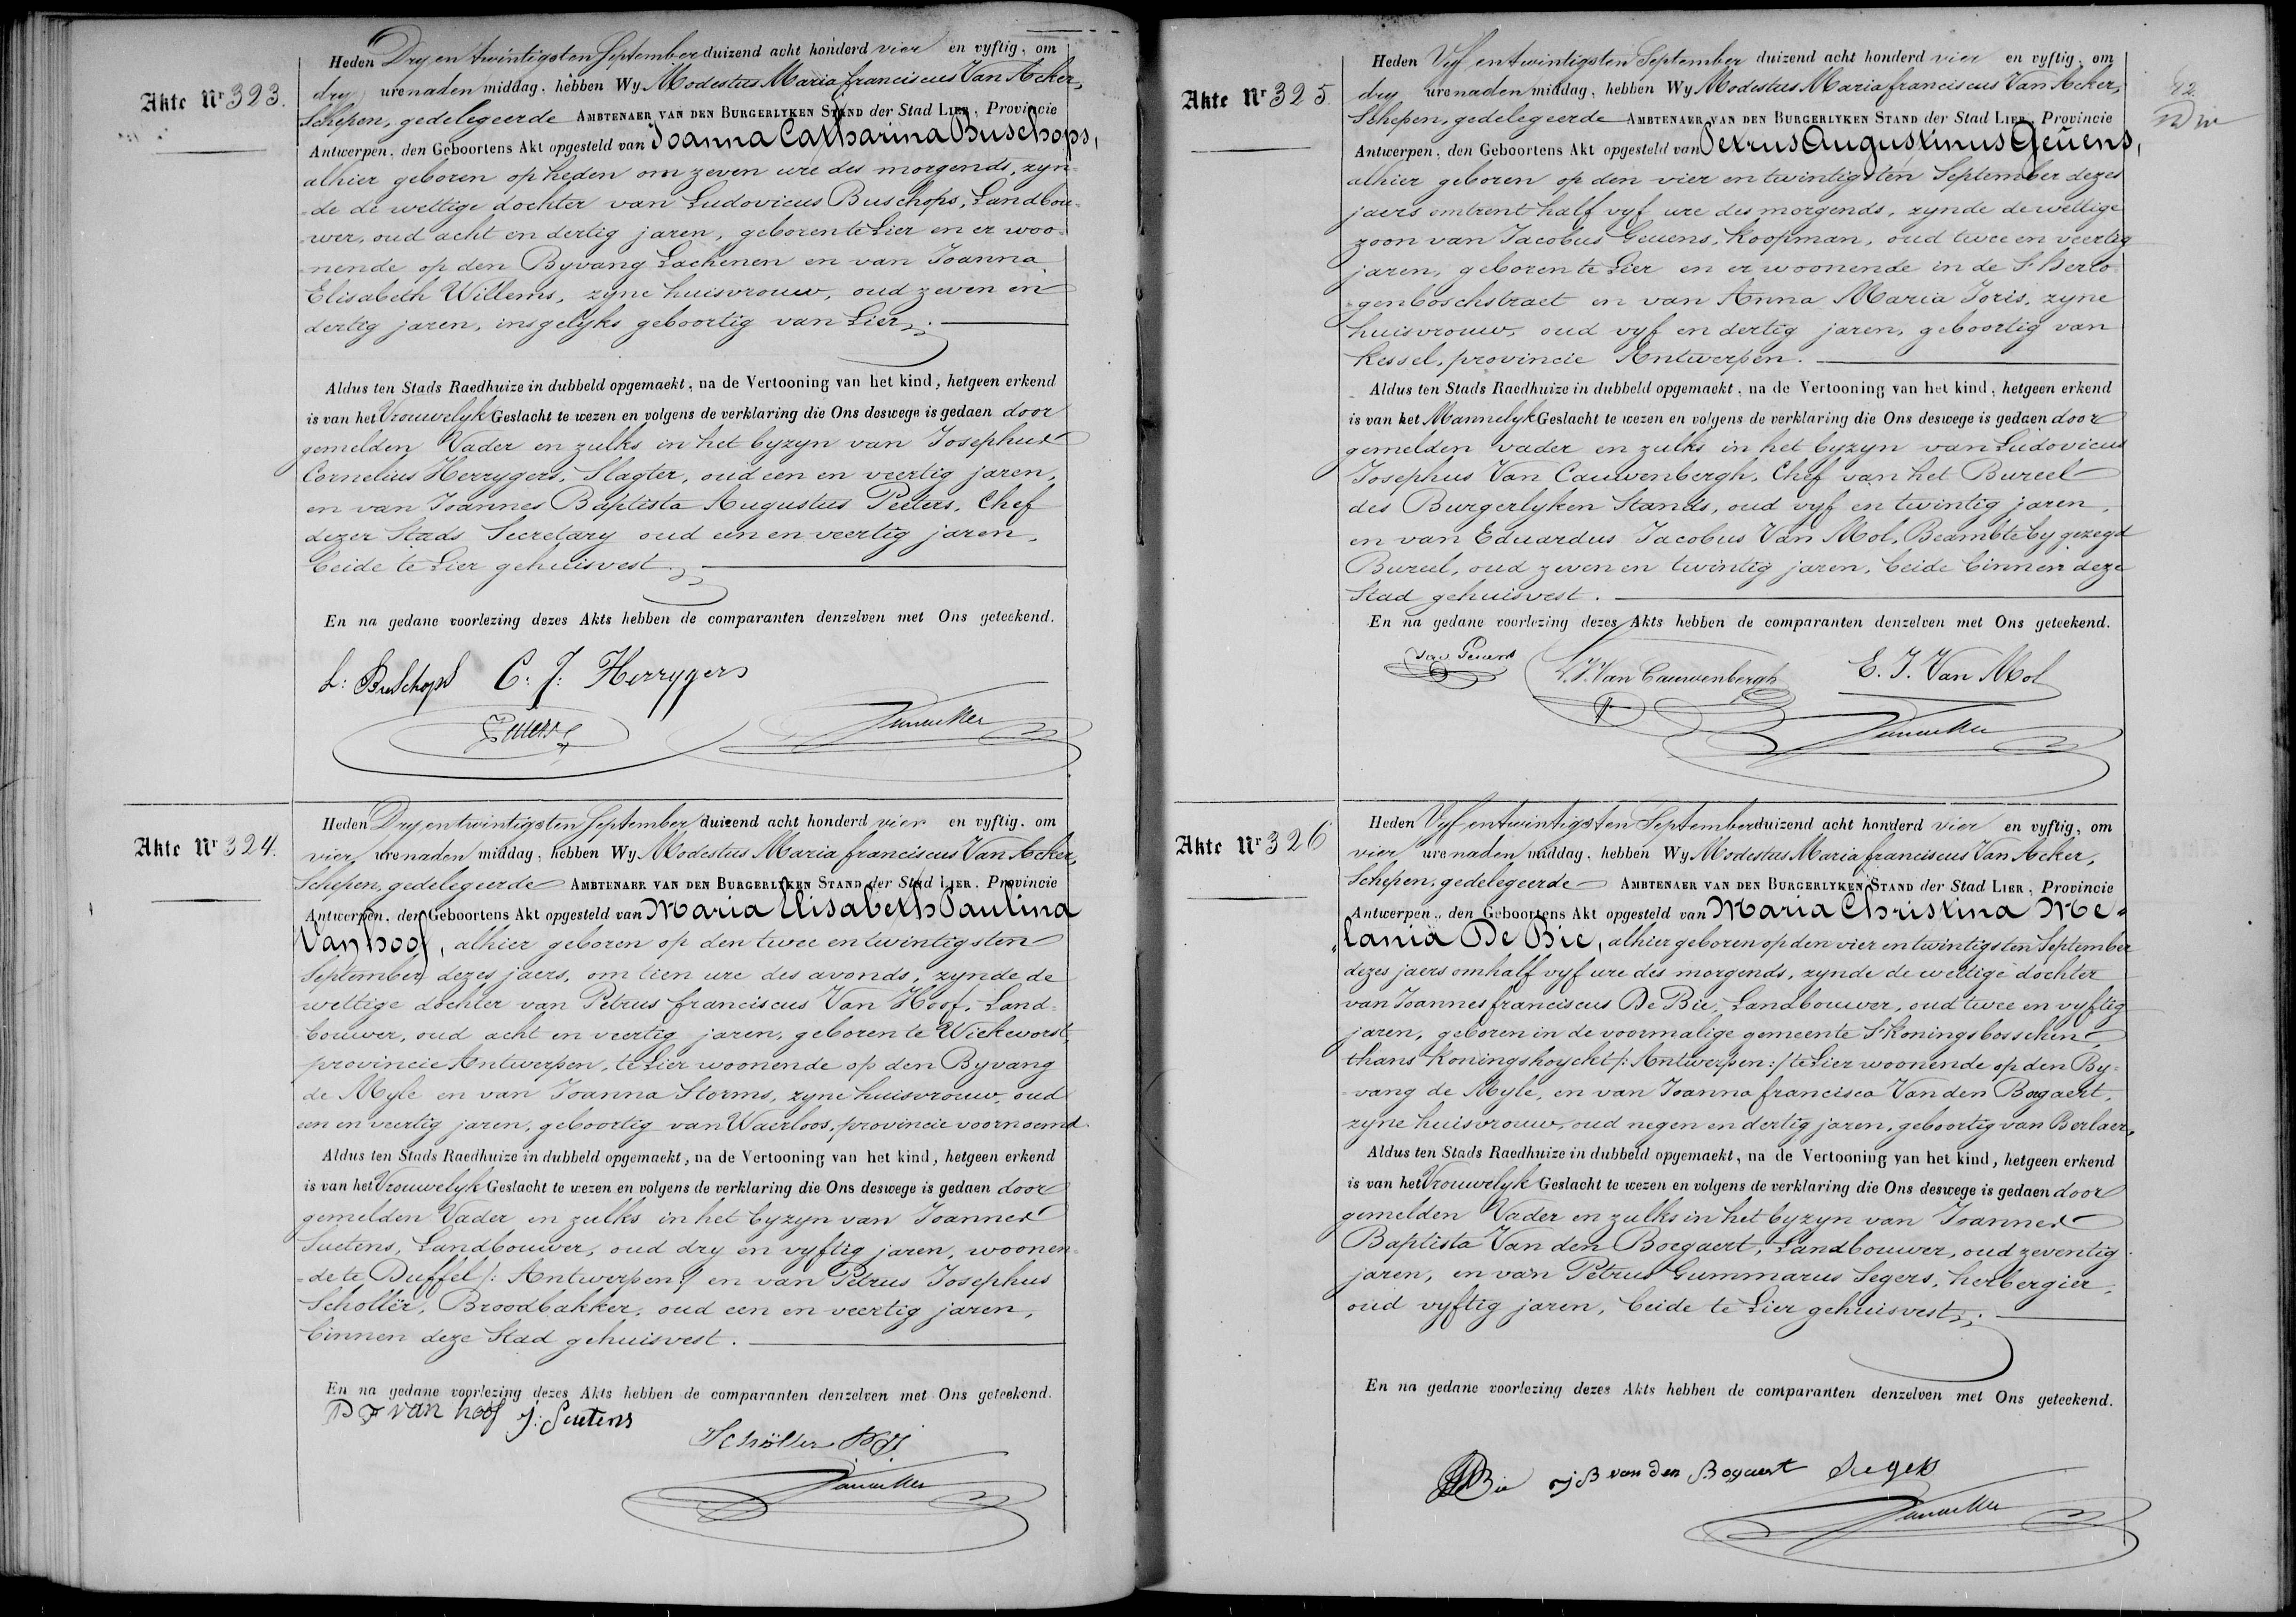 Akte Nr 323.
Heden Dry en twintigsten September duizend acht honderd vier en vyftig, om
dry ure naden middag, hebben Wy Modestus Maria franciscus Van Acker,
Schepen, gedelegeerde AMBTENAER VAN DEN BURGERLYKEN STAND der Stad LIER, Provincie
Antwerpen, den Geboortens Akt opgesteld van Joanna Catharina Buschops,
alhier geboren op heden om zeven ure des morgends, zyn-
-de de wettige dochter van Ludovicus Buschops, Landbou-
-wer, oud acht en dertig jaren, geboren te Lier en er woo-
-nende op den Byvang Lachenen en van Joanna
Elisabeth Willems, zyne huisvrouw, oud zeven en
dertig jaren, insgelyks geboortig van Lier.
Aldus ten Stads Raedhuize in dubbeld opgemaekt, na de Vertooning van het kind, hetgeen erkend
is van het Vrouwelyk Geslacht te wezen en volgens de verklaring die Ons deswege is gedaen door
gemelden Vader en zulks in het byzyn van Josephus
Cornelius Herrygers, Slagter, oud een en veertig jaren,
en van Joannes Baptista Augustus Peeters, Chef
dezer Stads Secretary oud een en veertig jaren,
beide te Lier gehuisvest.
En na gedane voorlezing dezes Akts hebben de comparanten denzelven met Ons geteekend.
L: Buschops C. J: Herrygers
Peeters Vanacker
Akte Nr 324.
Heden Dry en twintigsten September duizend acht honderd vier en vyftig, om
vier ure naden middag, hebben Wy Modestus Maria franciscus Van Acker,
Schepen, gedelegeerde AMBTENAER VAN DEN BURGERLYKEN STAND der Stad LIER, Provincie
Antwerpen, den Geboortens Akt opgesteld van Maria Elisabeth Paulina
Van hoof, alhier geboren op den twee en twintigsten
September dezes jaers, om tien ure des avonds, zynde de
wettige dochter van Petrus franciscus Van Hoof, Land-
-bouwer, oud acht en veertig jaren, geboren te Wiekevorst,
provincie Antwerpen, te Lier woonende op den Byvang
de Myle en van Joanna Storms, zyne huisvrouw, oud
een en veertig jaren, geboortig van Waerloos, provincie voornoemd.
Aldus ten Stads Raedhuize in dubbeld opgemaekt, na de Vertooning van het kind, hetgeen erkend
is van het Vrouwelyk Geslacht te wezen en volgens de verklaring die Ons deswege is gedaen door
gemelden Vader en zulks in het byzyn van Joannes
Suetens, Landbouwer, oud dry en vyftig jaren, woonen-
-de te Duffel /: Antwerpen :/ en van Petrus Josephus
Schollër, Broodbakker, oud een en veertig jaren,
binnen deze Stad gehuisvest.
En na gedane voorlezing dezes Akts hebben de comparanten denzelven met Ons geteekend.
P F van hoof J: Suetens
Schöller P. J.
Vanacker
Akte Nr 325
Heden Vyf en twintigsten September duizend acht honderd vier en vyftig, om
dry ure naden middag, hebben Wy Modestus Maria franciscus Van Acker,
Schepen, gedelegeerde AMBTENAER VAN DEN BURGERLYKEN STAND der Stad LIER, Provincie
Antwerpen, den Geboortens Akt opgesteld van Petrus Augustinus Geuens,
alhier geboren op den vier en twintigsten September dezes
jaers omtrent half vyf ure des morgends, zynde de wettige
zoon van Jacobus Geuens, koopman, oud twee en veertig
jaren, geboren te Lier en er woonende in de S'Herto-
-genboschstraet en van Anna Maria Joris, zyne
huisvrouw, oud vyf en dertig jaren, geboortig van
Kessel, provincie Antwerpen.
Aldus ten Stads Raedhuize in dubbeld opgemaekt, na de Vertooning van het kind, hetgeen erkend
is van het Mannelyk Geslacht te wezen en volgens de verklaring die Ons deswege is gedaen door
gemelden vader en zulks in het byzyn van Ludovicus
Josephus Van Cauwenbergh, Chef van het Bureel
des Burgerlyken Stands, oud vyf en twintig jaren,
en van Eduardus Jacobus Van Mol, Beambte by gezegd
Bureel, oud zeven en twintig jaren, beide binnen deze
Stad gehuisvest.
En na gedane voorlezing dezes Akts hebben de comparanten denzelven met Ons geteekend.
Jac Geuens L. J. Van Cauwenbergh E. J. Van Mol
Vanacker
Akte Nr 326
Heden Vyf en twintigsten September duizend acht honderd vier en vyftig, om
vier ure naden middag, hebben Wy Modestus Maria franciscus Van Acker,
Schepen, gedelegeerde AMBTENAER VAN DEN BURGERLYKEN STAND der Stad LIER, Provincie
Antwerpen, den Geboortens Akt opgesteld van Maria Christina Me-
-lania De Bie, alhier geboren op den vier en twintigsten September
dezes jaers om half vyf ure des morgends, zynde de wettige dochter
van Joannes franciscus De Bie, Landbouwer, oud twee en vyftig
jaren, geboren in de voormalige gemeente S'Koningsbosschen
thans Koningshoyckt /: Antwerpen :/ te Lier woonende op den By-
-vang de Myle, en van Joanna francisca Van den Bogaert,
zyne huisvrouw, oud negen en dertig jaren, geboortig van Berlaer.
Aldus ten Stads Raedhuize in dubbeld opgemaekt, na de Vertooning van het kind, hetgeen erkend
is van het Vrouwelyk Geslacht te wezen en volgens de verklaring die Ons deswege is gedaen door
gemelden Vader en zulks in het byzyn van Joannes
Baptista Van den Boegaert, Landbouwer, oud zeventig
jaren, en van Petrus Gummarus Segers, herbergier,
oud vyftig jaren, beide te Lier gehuisvest.
En na gedane voorlezing dezes Akts hebben de comparanten denzelven met Ons geteekend.
De Bie J B van den Bogaert Segers
Vanacker